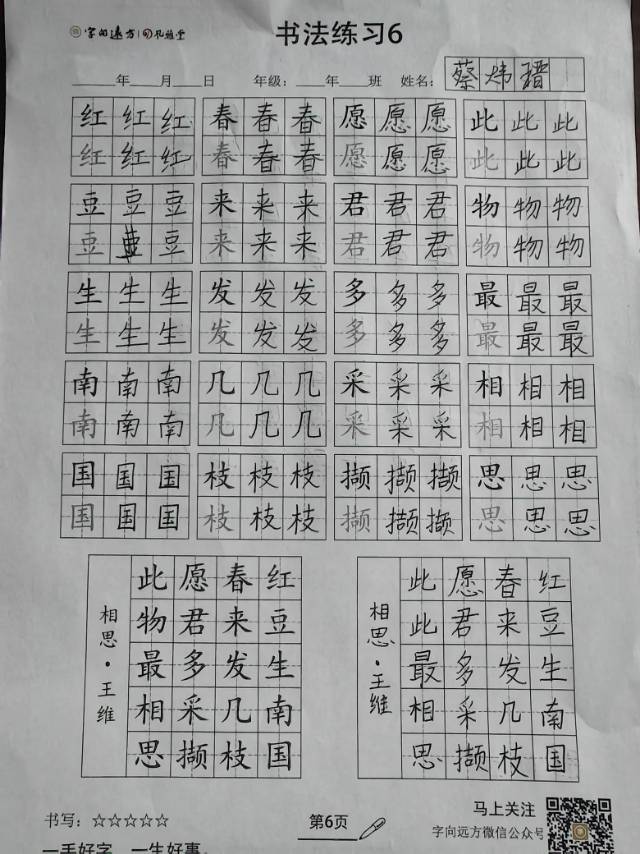 字向远方
书法练习6
____年____月____日 年级：____年____班 姓名：蔡炜瑨
红红红 春春春 愿愿愿 此此此
红红红 春春春 愿愿愿 此此此
豆豆豆 来来来 君君君 物物物
豆豆豆 来来来 君君君 物物物
生生生 发发发 多多多 最最最
生生生 发发发 多多多 最最最
南南南 几几几 采采采 相相相
南南南 几几几 采采采 相相相
国国国 枝枝枝 撷撷撷 思思思
国国国 枝枝枝 撷撷撷 思思思
红豆生南国
春来发几枝
愿君多采撷
此物最相思
相思·王维
红豆生南国
春来发几枝
愿君多采撷
此此最相思
相思·王维
书写：☆☆☆☆☆
一手好字，一生好事。
第6页
马上关注
字向远方微信公众号